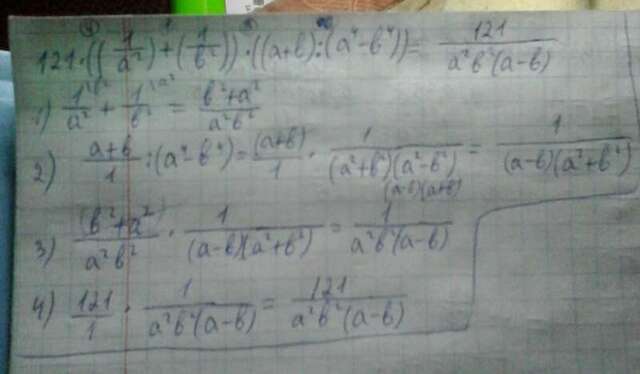 121·((1/a²)+(1/b²))·((a+b):(a⁴-b⁴))= 121/a²b²(a-b)
1) 1/a² + 1/b² = b²+a²/a²b²
2) a+b/1 :(a⁴-b⁴)= (a+b)/1 · 1/(a²+b²)(a²-b²) = 1/(a-b)(a²+b²)
(a-b)(a+b)
3) (b²+a²)/a²b² · 1/(a-b)(a²+b²) = 1/a²b²(a-b)
4) 121/1 · 1/a²b²(a-b) = 121/a²b²(a-b)